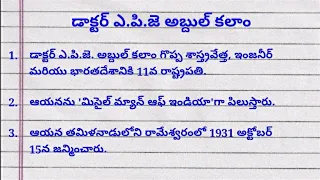 డాక్టర్ ఎ.పి.జె అబ్దుల్ కలాం
1. డాక్టర్ ఎ.పి.జె. అబ్దుల్ కలాం గొప్ప శాస్త్రవేత్త, ఇంజనీర్
మరియు భారతదేశానికి 11వ రాష్ట్రపతి.
2. ఆయనను 'మిసైల్ మ్యాన్ ఆఫ్ ఇండియా'గా పిలుస్తారు.
3. ఆయన తమిళనాడులోని రామేశ్వరంలో 1931 అక్టోబర్
15న జన్మించారు.